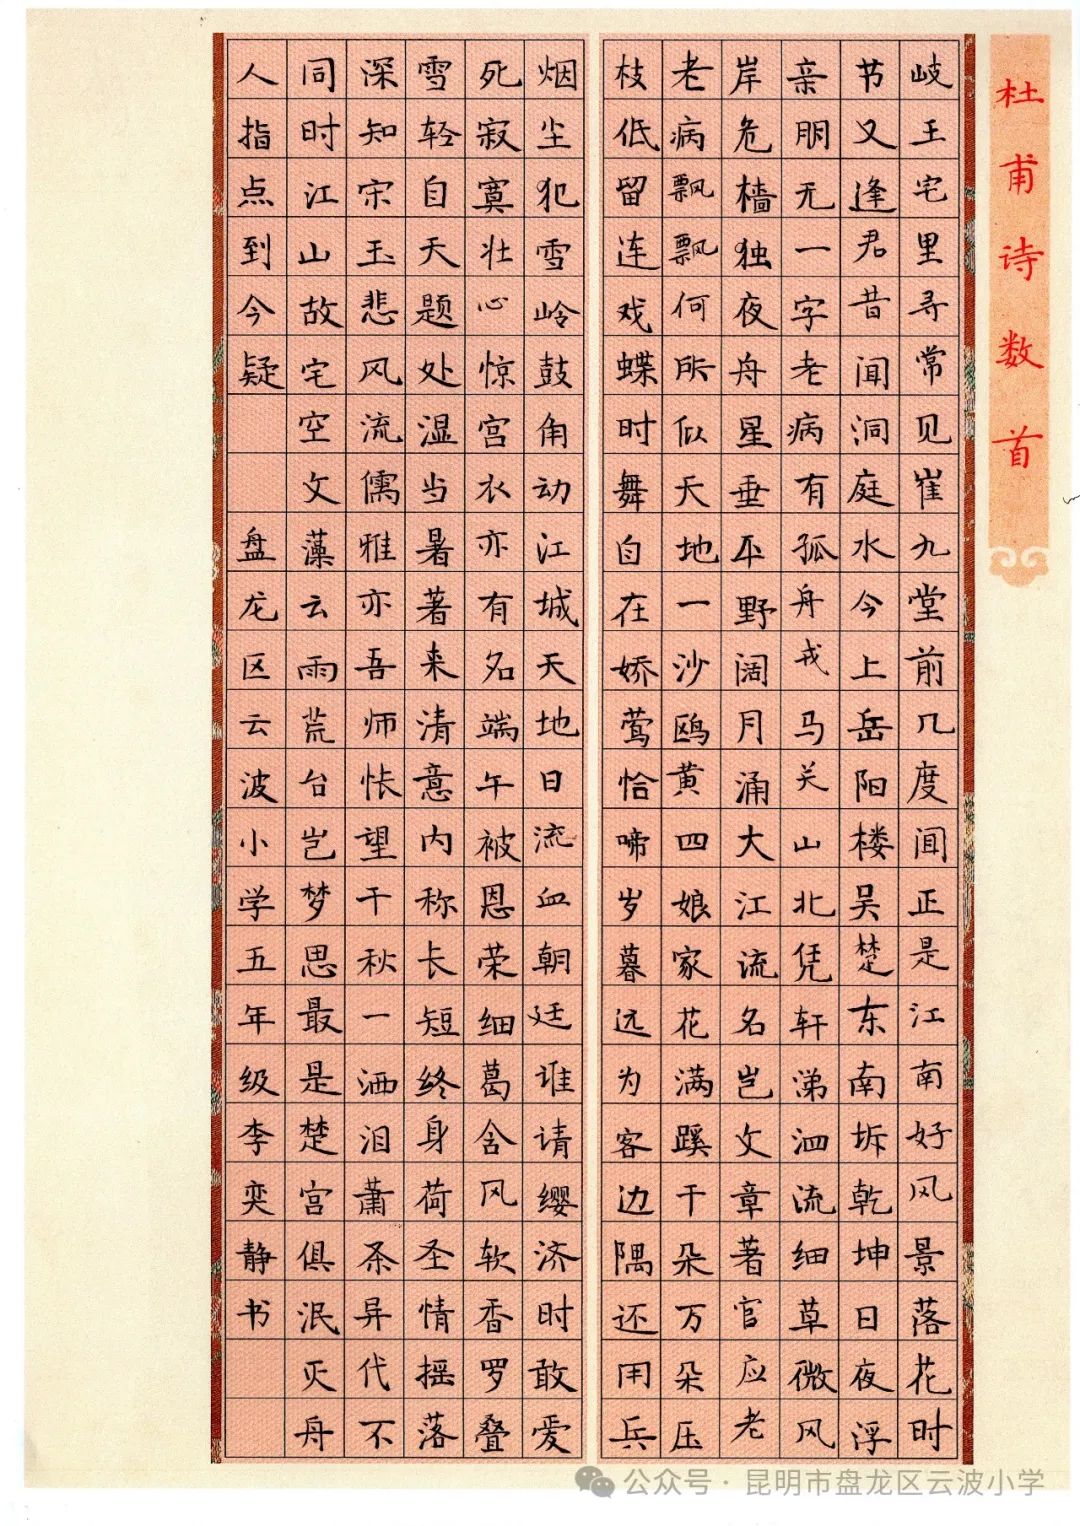 杜甫诗数首
岐王宅里寻常见崔九堂前几度闻正是江南好风景落花时
节又逢君昔闻洞庭水今上岳阳楼吴楚东南坼乾坤日夜浮
亲朋无一字老病有孤舟戎马关山北凭轩涕泗流细草微风
岸危樯独夜舟星垂平野阔月涌大江流名岂文章著官应老
老病飘飘何所似天地一沙鸥黄四娘家花满蹊千朵万朵压
枝低留连戏蝶时舞自在娇莺恰啼岁暮远为客边隅还用兵
烟尘犯雪岭鼓角动江城天地日流血朝廷谁请缨济时敢爱
死寂寞壮心惊宫衣亦有名端午被恩荣细葛含风软香罗叠
雪轻自天题处湿当暑著来清意内称长短终身荷圣情摇落
深知宋玉悲风流儒雅亦吾师怅望千秋一洒泪萧条异代不
同时江山故宅空文藻云雨荒台岂梦思最是楚宫俱泯灭舟
人指点到今疑 盘龙区云波小学五年级李奕静书
公众号·昆明市盘龙区云波小学